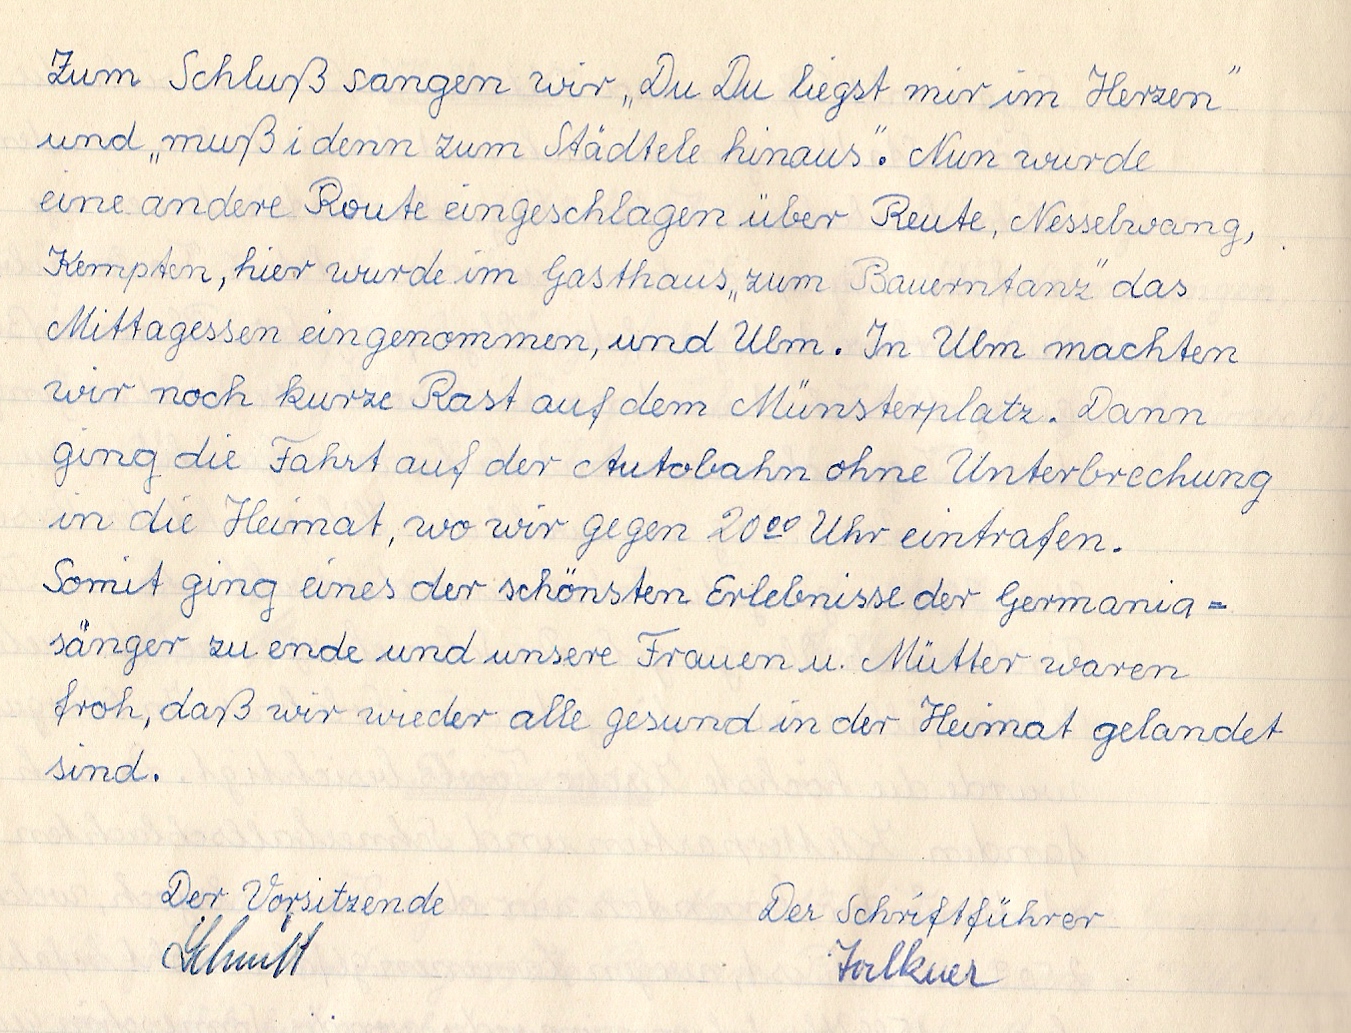 Zum Schluß sangen wir „Du Du liegst mir im Herzen“
und „muß i denn zum Städtele hinaus“. Nun wurde
eine andere Route eingeschlagen über Reute, Nesselwang,
Kempten, hier wurde im Gasthaus „zum Bauerntanz“ das
Mittagessen eingenommen, und Ulm. In Ulm machten
wir noch kurze Rast auf dem Münsterplatz. Dann
ging die Fahrt auf der Autobahn ohne Unterbrechung
in die Heimat, wo wir gegen 20⁰⁰ Uhr eintrafen.
Somit ging eines der schönsten Erlebnisse der Germania=
sänger zu ende und unsere Frauen u. Mütter waren
froh, daß wir wieder alle gesund in der Heimat gelandet
sind.
Der Vorsitzende Der Schriftführer
Schmitt Falkner